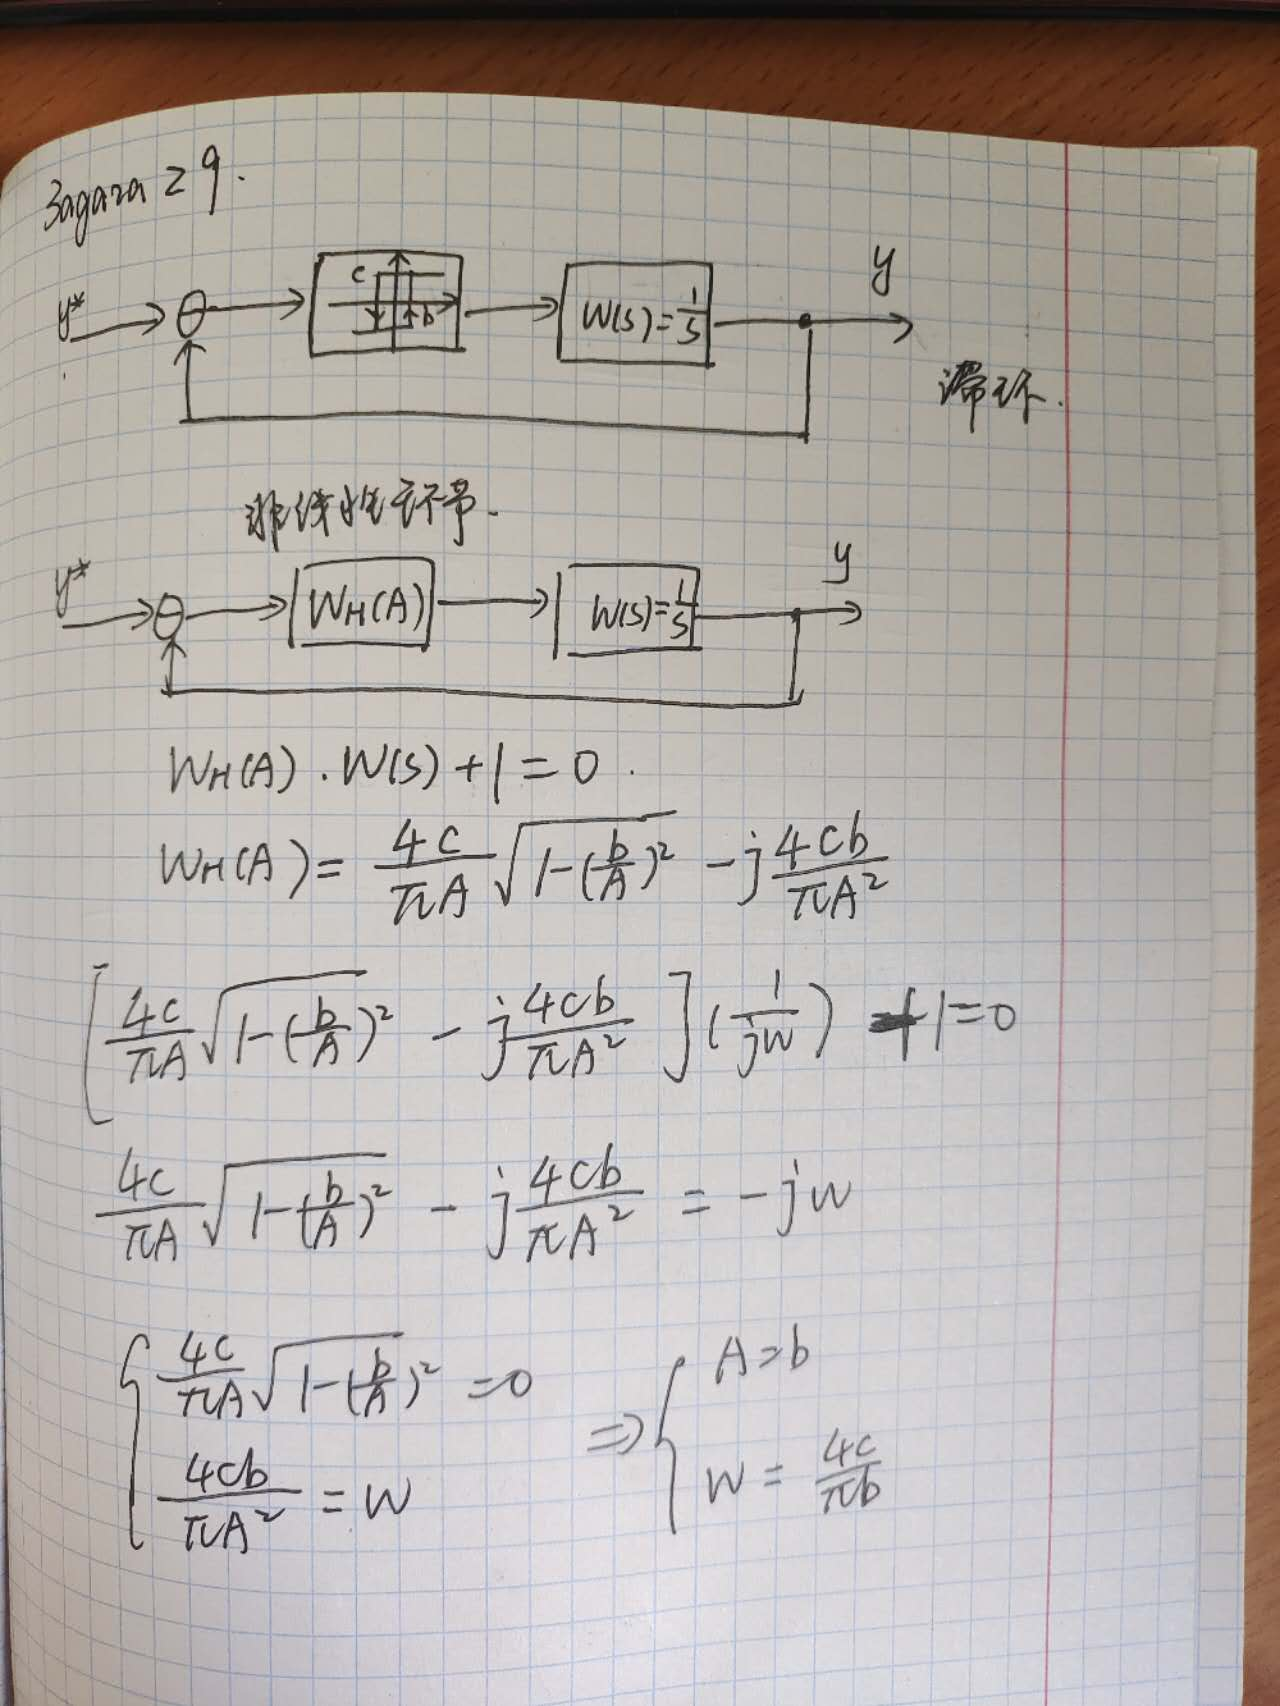 Загага 29.
y* c b W(s)=1/s y
滞环.
非线性环节.
y* W_H(A) W(s)=1/s y
W_H(A) . W(s) + 1 = 0 .
W_H(A) = 4c/πA √1-(b/A)² - j 4cb/πA²
[ 4c/πA √1-(b/A)² - j 4cb/πA² ] (1/jw) + 1 = 0
4c/πA √1-(b/A)² - j 4cb/πA² = -jw
{ 4c/πA √1-(b/A)² = 0 ⇒ { A=b
4cb/πA² = w w = 4c/πb